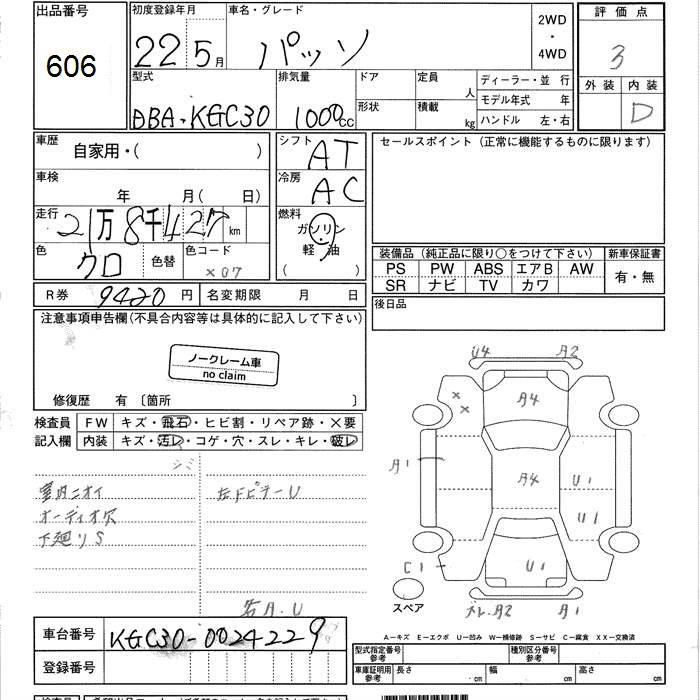 出品番号 初度登録年月 車名・グレード 評価点
606 22年5月 パッソ 2WD・4WD 3
外装 内装
D
型式 排気量 ドア 定員 人 ディーラー・並行
形状 積載 kg モデル年式 年
DBA-KGC30 1000cc ハンドル 左・右
車歴 自家用・( ) シフト AT セールスポイント(正常に機能するものに限ります)
車検 年 月(日) 冷房 AC
走行 2万8千427km 燃料 ガソリン
色 クロ 色替 色コード X07 軽油 ( )
装備品(純正品に限り○をつけて下さい) 新車保証書
PS PW ABS エアB AW 有・無
SR ナビ TV カワ
R券 9420円 名変期限 月 日 後日品
注意事項申告欄(不具合内容等は具体的に記入して下さい)
ノークレーム車
no claim
修復歴 有〔箇所 〕
検査員 FW キズ・飛石・ヒビ割・リペア跡・×要
記入欄 内装 キズ・汚レ・コゲ・穴・スレ・キレ・破レ
シミ
室内ニオイ 左FピラーU
オーディオ欠
下廻りS
右A.U
U4 A2
× ×
A4
A1
A4 U1
U1
C1 U1
スペア
A2 A1
A―キズ E―エクボ U―凹み W―補修跡 S―サビ C―腐食 XX―交換済
車台番号 KGC30-0024229
型式指定番号 参考 種別区分番号 参考
登録番号
車庫証明用 参考 長さ cm 幅 cm 高さ cm